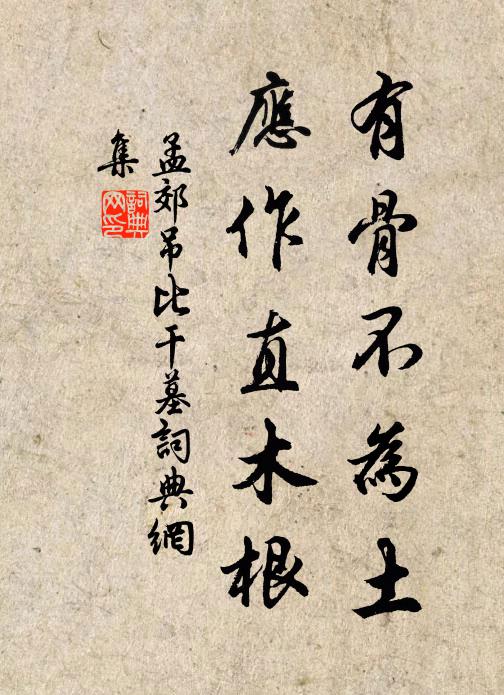 有骨不為土
應作直木根
孟郊吊比干墓詞典網
集
詞典
网印